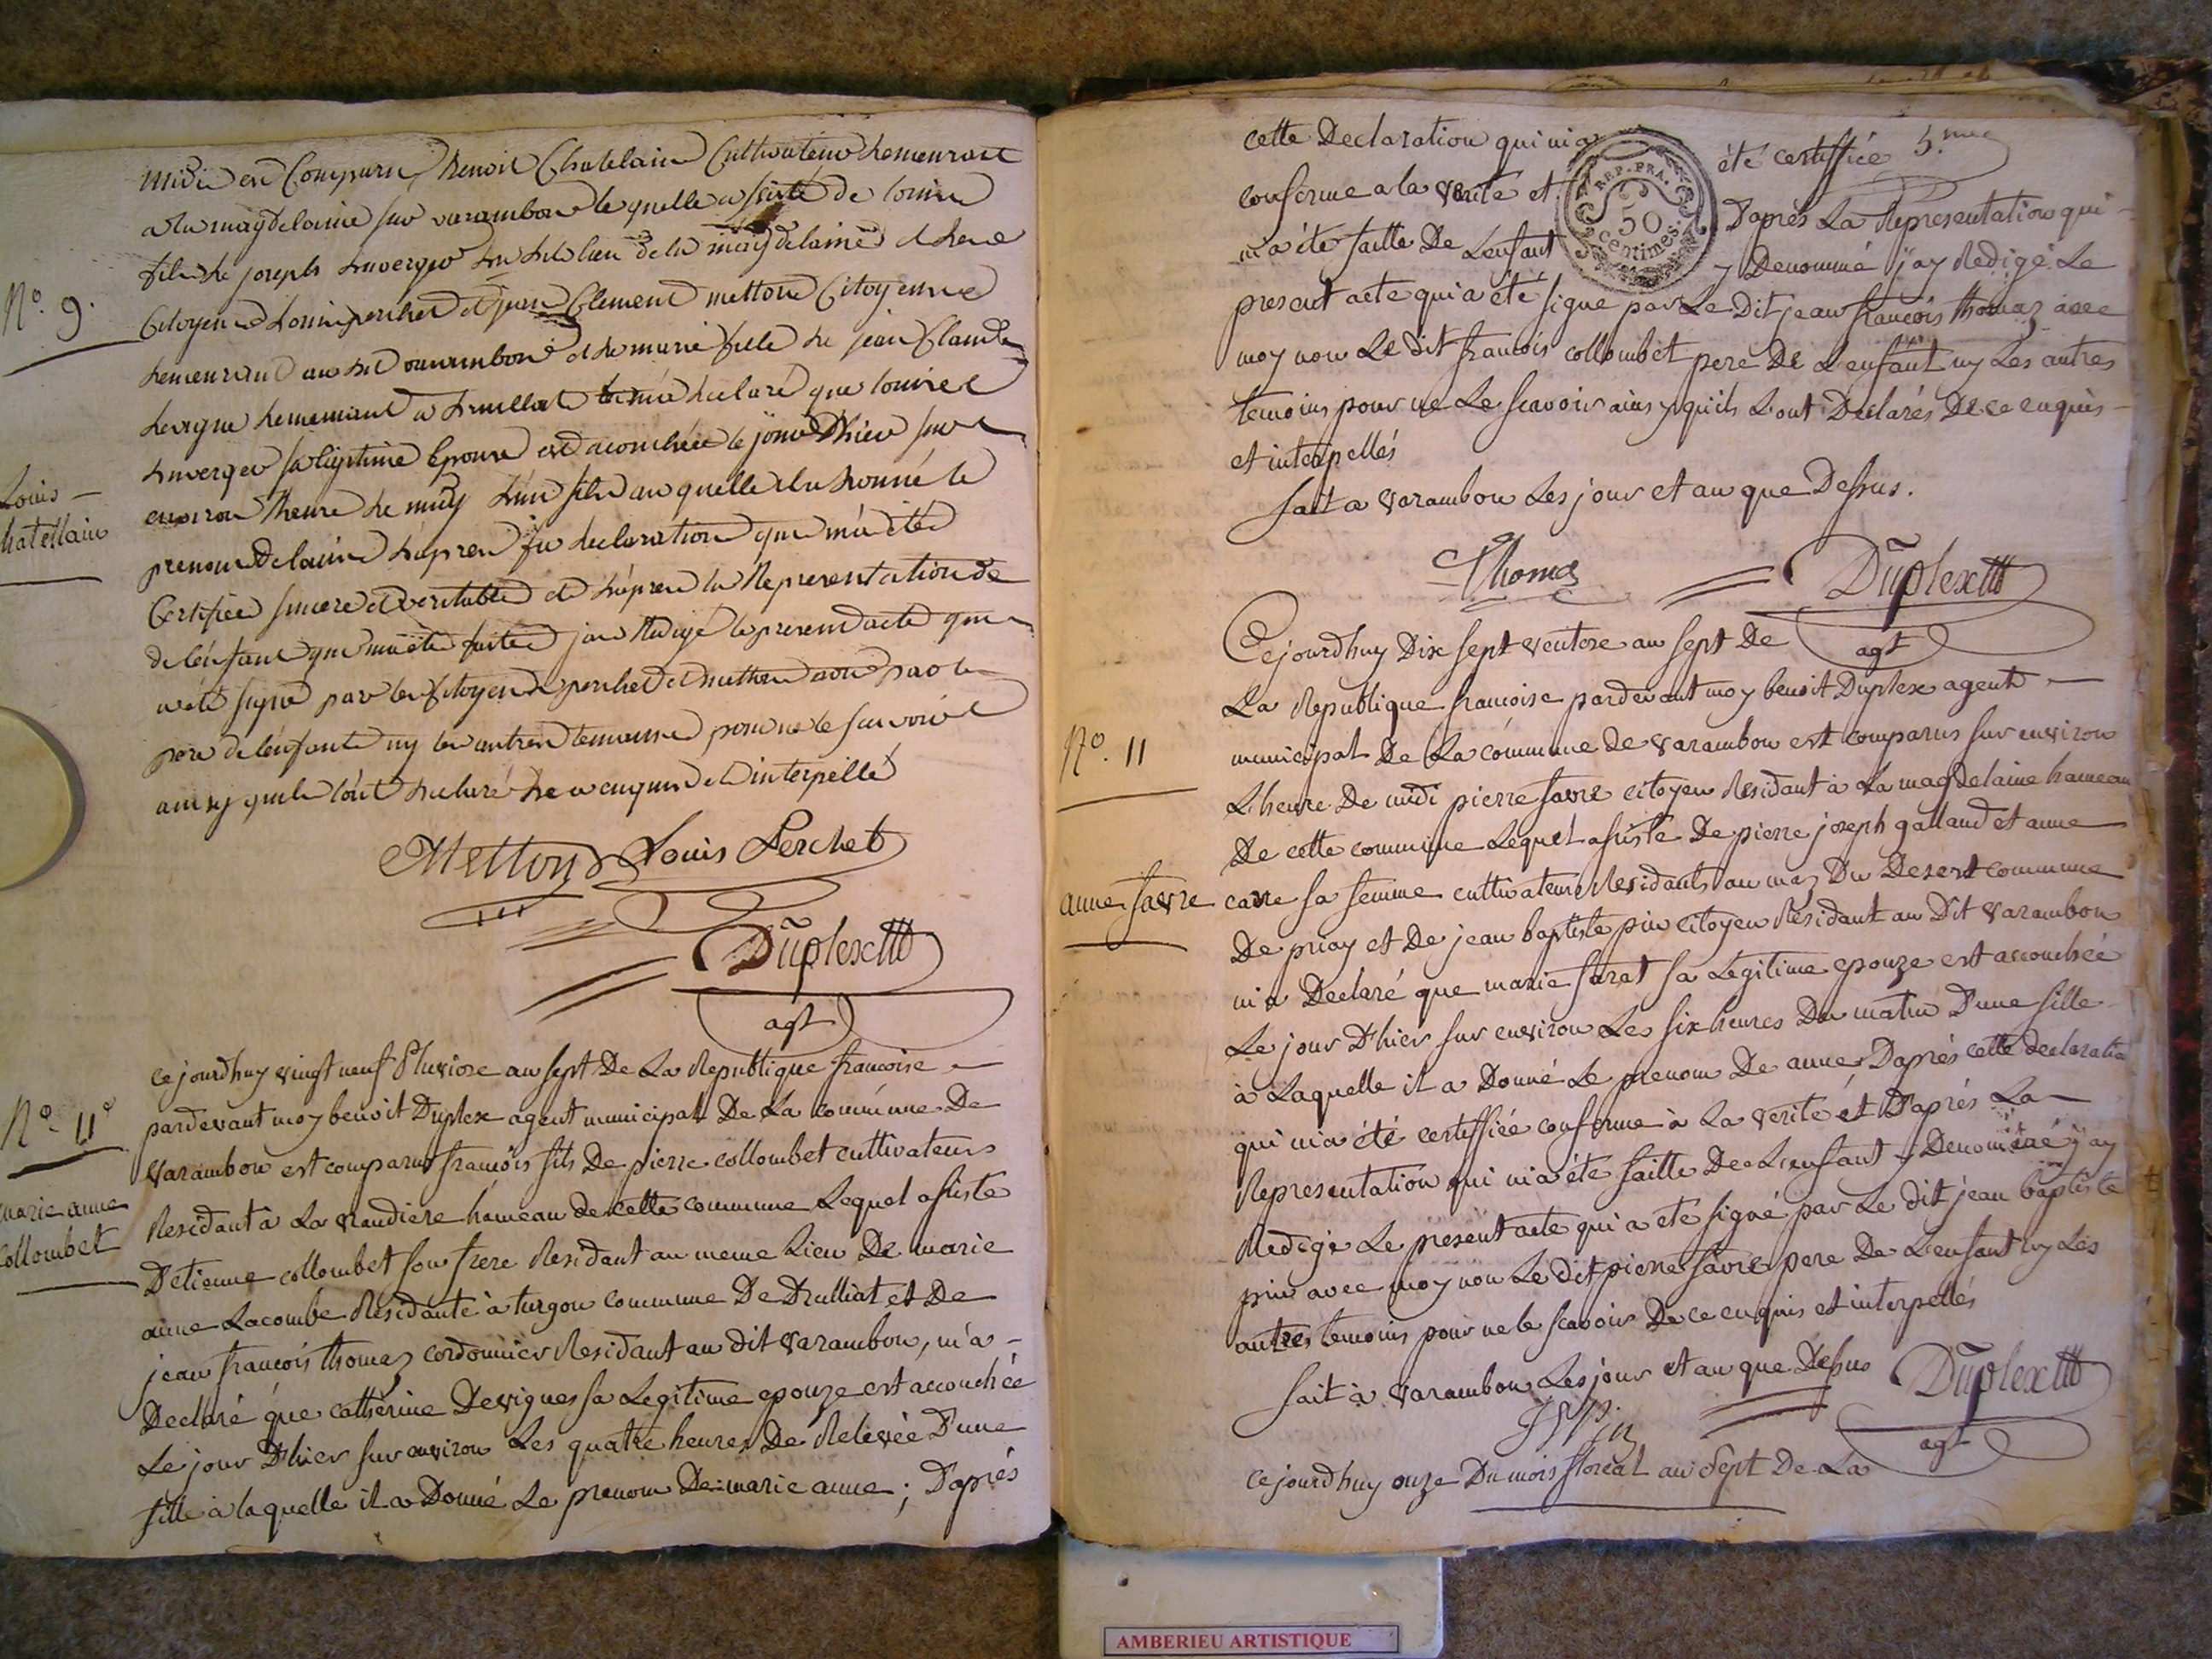 midi est comparu benoit Chatelain Cultivateur demeurant
a la magdelaine sur varambon le quelle assisté de louis
fils de joseph duverger du dit lieu de la magdelaine et des
Citoyens Louis perchet et jean Clement metton Citoyens
N.º 9.
demeurant au dit varambon et de marie fille de jean Claude
devigne demeurant a druillat m'a declaré que louise
duverger sa legitime Epouse est acouchée le jour D'hier sur
Louis
Chatellain
environ l'heure de midy d'un fils au quelle il a donné le
prenom de louis d'apres sa declaration qui m'a eté
Certifiée sincere et veritable et d'apres la Representation de
de l'enfant qui m'a eté faite j'ai Redigé le present acte qui
a eté signé par les Citoyens perchet et metton non par le
pere de l'enfant ny les autres temoins pour ne le savoire
ainsy quils l'ont declaré de ce enquis et interpellé
Metton Louis Perchet
Duplex
agt
ce jourdhuy vingt neuf Pluviose an sept De La Republique francoise
N.º 11
pardevant moy benoit Duplex agent municipal De La commune De
Varambon est comparus francois fils De pierre collombet cultivateurs
marie anne
Collombet
Residant à La Vaudiere hameau de cette commune Lequel assiste
D'etienne collombet son frere Residant au meme Lieu De marie
anne Lacombe Residante à turgon commune De Drulliat et De
jean francois thomaz cordonnier Residant au dit Varambon, m'a
Declaré que catherine Devignes sa Legitime epouze est accouchée
Le jour D'hier sur environ Les quatre heures De Relevée D'une
fille à laquelle il a Donné Le prenom De marie anne ; D'aprés
cette Declaration qui m'a été certiffiée 5.me
conforme a la verité et D'aprés La Representation qui
REP. FRA.
50
centimes
m'a été faitte De L'enfant y Denommé j'ay Redigé Le
present acte qui a été signe par Le Dit jean francois thomaz avec
moy non Le dit francois collombet pere De L'enfant ny Les autres
temoins pour ne Le scavoir ainsy qu'ils L'ont Declarés De ce enquis
et interpellés
fait a varambon Les jour et an que Dessus.
Thomas Duplex
agt
Cejourdhuy Dix sept ventose an sept De
La Republique francoise pardevant moy benoit Duplex agent
N.º 11
municipal De La commune de varambon est comparus sur environ
L'heure De midi pierre favre citoyen Residant à La magdelaine hameau
De cette commune Lequel assisté De pierre joseph galland et anne
anne favre
carre sa femme cultivateurs Residants au maz Du Desert commune
De priay et De jean baptiste pin citoyen Residant au Dit varambon
m'a Declaré que marie farat sa Legitime epouze est accouchée
Le jour D'hier sur environ Les six heures Du matin D'une fille
à Laquelle il a Donné Le prenom De anne D'aprés cette declaration
qui m'a été certiffiée conforme à La verité et D'aprés La
Representation qui m'a été faitte De L'enfant y Denommé j'ay
Redigé Le present acte qui a eté signé par Le dit jean baptiste
pin avec moy non Le dit pierre favre pere De L'enfant ny Les
autres temoins pour ne le scavoir De ce enquis et interpellés
fait à varambon Les jour et an que Dessus Duplex
Pin
agt
ce jourdhuy onze Du mois floreal an Sept De La
AMBERIEU ARTISTIQUE